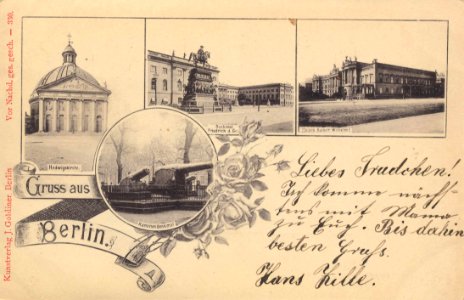 Kunstverlag J. Goldiner, Berlin
Vor Nachd. ges. gesch. — 350.
Hedwigskirche.
Denkmal
Friedrich d. Gr.
Palais Kaiser Wilhelm I
Kanonen Denkmal
Gruss aus
Berlin.
Liebes Trudchen!
Ich komme näch-
stens mit Mama
zu Euch. Bis dahin
besten Gruß.
Hans Zille.